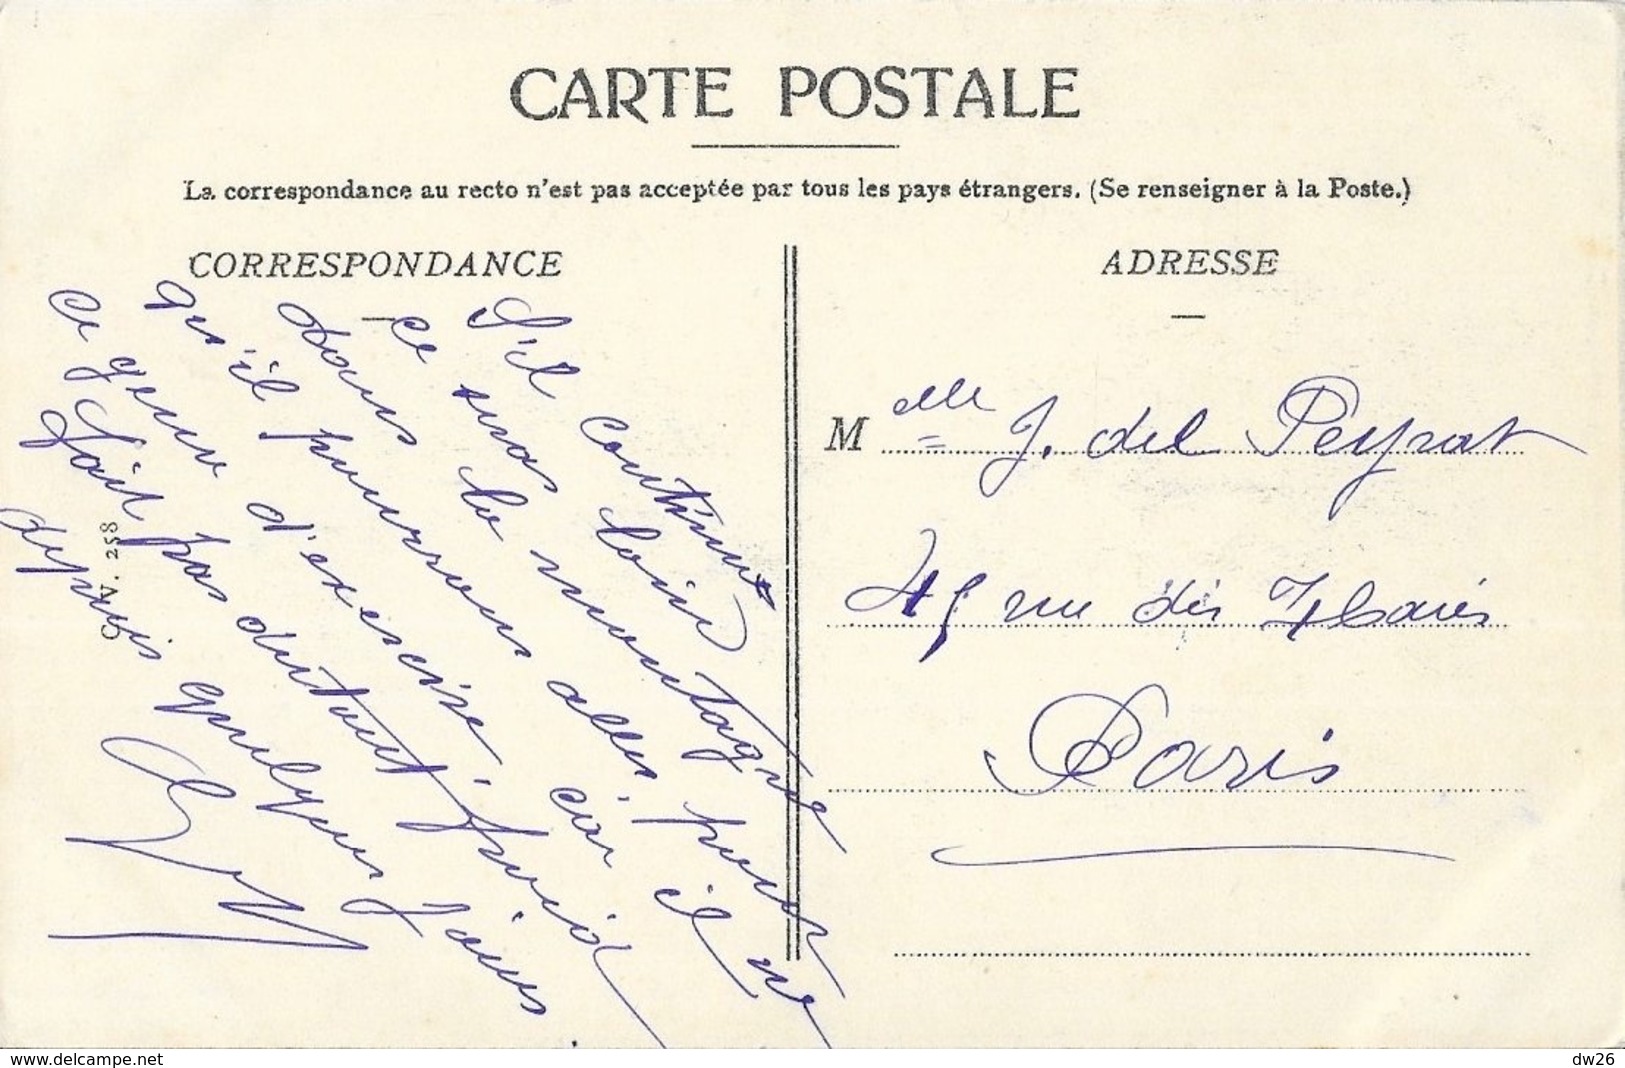 CARTE POSTALE
La correspondance au recto n'est pas acceptée par tous les pays étrangers. (Se renseigner à la Poste.)
CORRESPONDANCE
S'il continue
ce sera loin
dans la montagne
qu'il pourrons aller pour
ce genre d'exercice, car il ne
fait pas du tout froid
depuis quelques jours.
C. V. 258
ADRESSE
Melle J. del Peyrat
45 rue des
Paris
www.delcampe.net
dw26